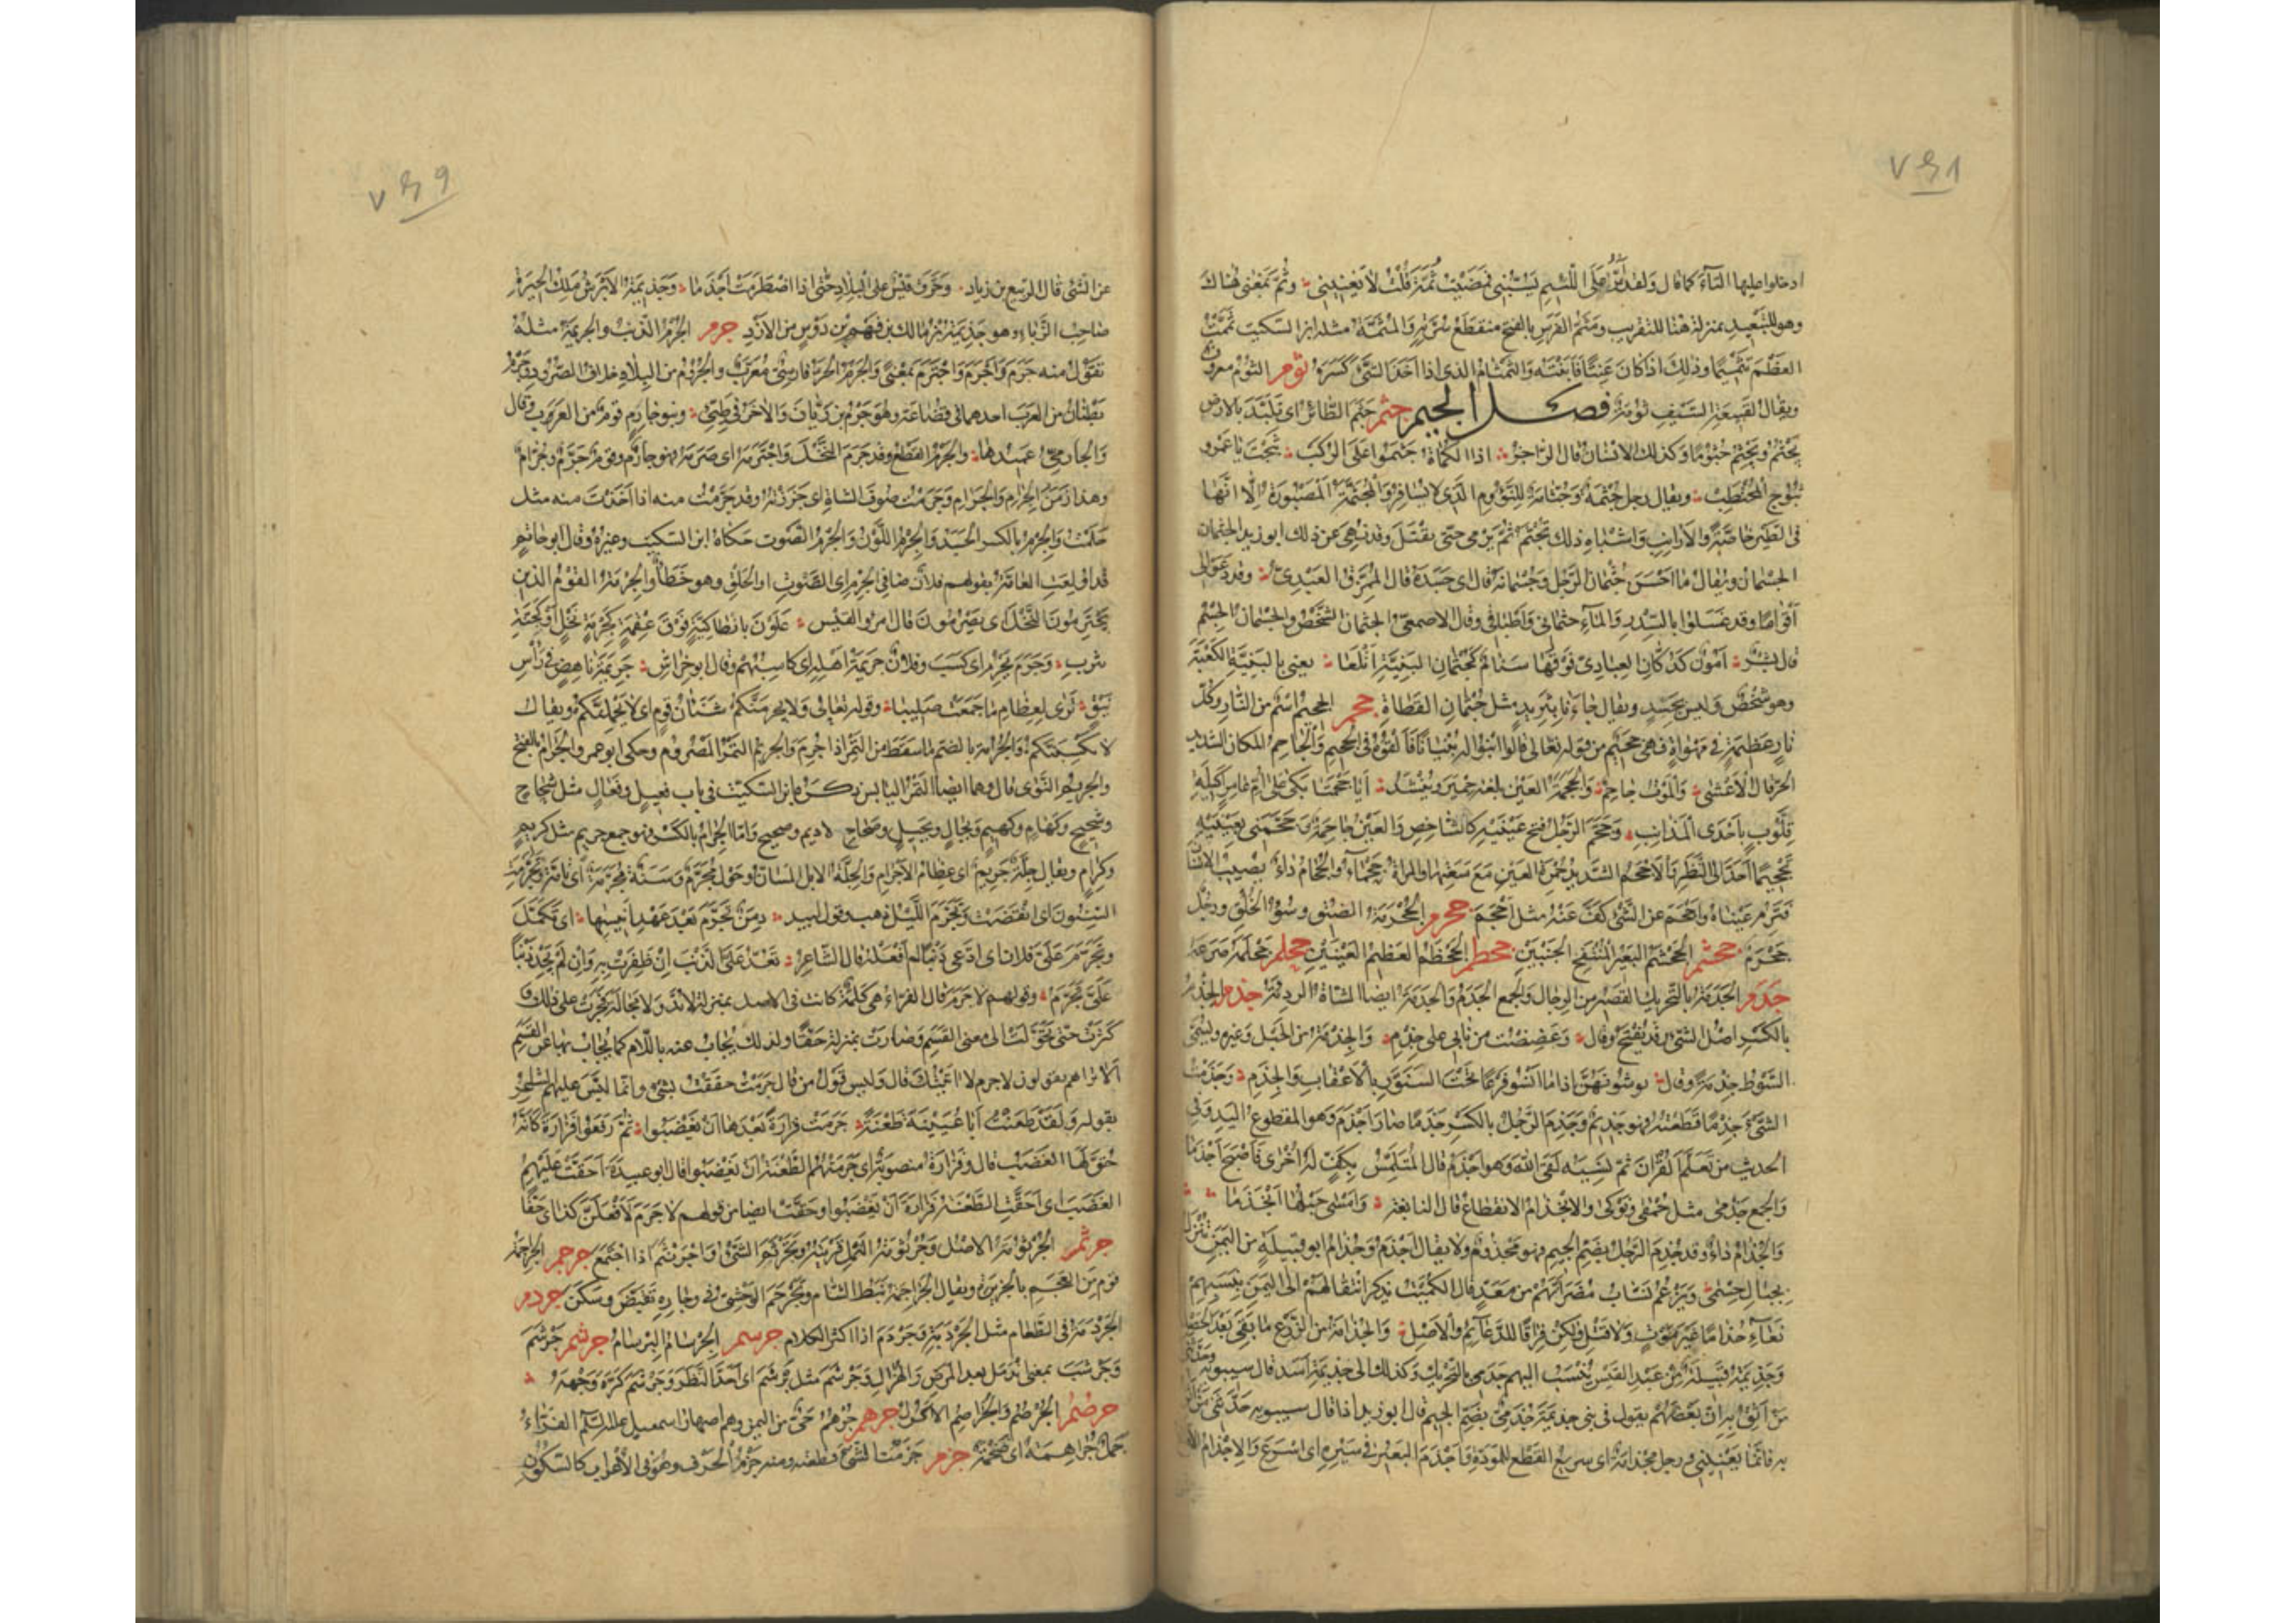 ٧٤٨
ادخلوا عليها التاء كما قال ولقد امر على اللئيم يسبني فمضيت ثمة قلت لا يعنيني وثم بمعنى هناك
وهو للتبعيد بمنزلة هنا للتقريب ومثم الفرس بالفتح منقطع سرته والمثمة مثله ابن السكيت ثممت
العظم تثميما وذلك اذا كان عنتا فابنته والتمثام الذى اذا اخذ الشئ كسره ثوم الثوم معروف
ويقال لقبيعة السيف ثومة فصل الجيم جثم جثم الطائر اى تلبد بالارض
يجثم ويجثم جثوما وكذلك الانسان قال الراجز اذا الكماة جثموا على الركب ثبجت يا عمرو
ثبوج المحتطب ويقال رجل جثمة وجثامة للنؤوم الذى لا يسافر والمجثمة المصبورة الا انها
فى الطير خاصة والارانب واشباه ذلك تجثم ثم يرمى حتى يقتل وقد نهى عن ذلك ابو زيد الجثمان
الجسمان ويقال ما احسن جثمان الرجل وجسمانه قال اى جسده قال الممزق العبدى وقد دعوا لى
اقواما وقد غسلوا بالسدر والماء جثمانى واطباقى وقال الاصمعى الجثمان الشخص والجسمان الجسم
قال بشر امون كدكان العبادى فوقها سنام كجثمان البنية اتلعا يعنى بالبنية الكعبة
وهو شخص وليس بجسد ويقال جاءنا بثريد مثل جثمان القطاة جحم الجحيم اسم من النار وكل
نار عظيمة فى مهواة فهى جحيم من قوله تعالى قالوا ابنوا له بنيانا فالقوه فى الجحيم والجاحم المكان الشديد
الحر قال الاعشى والموت جاحم والجحمة العين بلغة حمير وينشد ايا جحمتا بكى على ام مالك اكيلة
قلوب باحدى المذانب وجحم الرجل فتح عينيه كالشاخص والعين جاحمة وجحمنى بعينيه
تجحيما احد الى النظر والاجحم الشديد حمرة العين مع سعتها والمراة جحماء والجحام داء يصيب الانسان
فترم عيناه واجحم عن الشئ كف عنه مثل احجم جحرم الجحرمة الضيق وسوء الخلق ورجل
جحرم جحشم الجحشم البعير المنتفخ الجنبين جحظم الجحظم العظيم العينين جحلم جحلمه صرعه
جدم الجدمة بالتحريك القصير من الرجال والجمع الجدم والجدمة ايضا الشاة الردئة جذم الجذم
بالكسر اصل الشئ وقد يفتح وقال وعضضت من نابى على جذم والجذمة من الحبل وغيره ويسمى
السوط جذمة وقال يوشونهن اذا ما آنسوا فزعا تحت السنور بالاعقاب والجذم وجذمت
الشئ جذما قطعته فهو جذيم وجذم الرجل بالكسر جذما صار اجذم وهو المقطوع اليد وفى
الحديث من تعلم القرآن ثم نسيه لقى الله وهو اجذم قال المتلمس بكف له اخرى فاصبح اجذما
والجمع جذمى مثل حمقى ونوكى والانجذام الانقطاع قال النابغة وامسى حبلها انجذما
والجذام داء وقد جذم الرجل بضم الجيم فهو مجذوم ولا يقال اجذم وجذام ابو قبيلة من اليمن تنزل
بجبال حسمى ويزعم نساب مضر انهم من معد قال الكميت يذكر انتقالهم الى اليمن بنسبهم
نعاء جذاما غير موت ولا قتل ولكن فراقا للدعائم والاصل والجذامة من الزرع ما بقى بعد الحصد
وجذيمة قبيلة من عبد القيس ينسب اليهم جذمى بالتحريك وكذلك الى جذيمة اسد قال سيبويه وحدثنى
من اثق به ان بعضهم يقول فى بنى جذيمة جذمى بضم الجيم قال ابو زيد اذا قال سيبويه حدثنى من اثق
به فانما يعنينى ورجل مجذامة اى سريع القطع للمودة واجذم البعير فى سيره اى اسرع والاجذام الاقلاع
٧٤٩
عن الشئ قال الربيع بن زياد وحرق قيس على البلاد حتى اذا اضطرمت اجذما وجذيمة الابرش ملك الحيرة
صاحب الزباء وهو جذيمة بن مالك بن فهم بن دوس من الازد جرم الجرم الذنب والجريمة مثله
تقول منه جرم واجرم واجترم بمعنى والجرم الحر فارسى معرب والجروم من البلاد خلاف الصرود وجرم
بطنان من العرب احدهما فى قضاعة وهو جرم بن زبان والآخر فى طيئ وبنو جارم قوم من العرب وقال
والجارمى عميدها والجرم القطع وقد جرم النخل واجترمه اى صرمه فهو جارم وقوم جرم وجرام
وهذا زمن الجرام والجرام وجرمت صوف الشاة اى جززته وقد جرمت منه اذا اخذت منه مثل
جلمت والجرم بالكسر الجسد والجرم اللون والجرم الصوت حكاه ابن السكيت وغيره وقال ابو حاتم
قد اولعت العامة بقولهم فلان صافى الجرم اى الصوت او الحلق وهو خطأ والجرمة القوم الذين
يجترمون النخل اى يصرمون قال امرؤ القيس علون بانطاكية فوق عقمة كجرمة نخل او كجنة
يثرب وجرم يجرم اى كسب وفلان جريمة اهله اى كاسبهم وقال ابو خراش جريمة ناهض فى رأس
نيق ترى لعظام ما جمعت صليبا وقوله تعالى ولا يجرمنكم شنئان قوم اى لا يحملنكم ويقال
لا يكسبنكم والجرامة بالضم ما سقط من التمر اذا جرم والجريم التمر المصروم وحكى ابو عمرو الجرام بالفتح
والجريم النوى قال وهما ايضا التمر اليابس ذكره ابن السكيت فى باب فعيل وفعال مثل شحاح
وشحيح وكهام وكهيم وبجال وبجيل وصحاح لاديم وصحيح واما الجرام بالكسر فهو جمع جريم مثل كريم
وكرام ويقال جلة جريم اى عظام الاجرام والجلة الابل المسان وحول مجرم وسنة مجرمة اى تامة وتجرمت
السنون اى انقضت وتجرم الليل ذهب وقول لبيد دمن تجرم بعد عهد انيسها اى تكمل
وتجرم على فلان اى ادعى ذنبا لم افعله قال الشاعر تعد على الذنب ان ظفرت به وان لم تجد ذنبا
على تجرم وقولهم لا جرم قال الفراء هى كلمة كانت فى الاصل بمنزلة لا بد ولا محالة فجرت على ذلك و
كثرت حتى تحولت الى معنى القسم وصارت بمنزلة حقا ولذلك يجاب عنه باللام كما يجاب بها عن القسم
الا تراهم يقولون لا جرم لآتينك قال وليس قول من قال جرمت حققت بشئ وانما لبس عليهم الشاعر
بقوله ولقد طعنت ابا عيينة طعنة جرمت فزارة بعدها ان يغضبوا ثم رفعوا فزارة كانه
حق لها الغضب قال وفزارة منصوبة اى جرمتهم الطعنة ان يغضبوا قال ابو عبيدة احقت عليهم
الغضب اى احقت الطعنة فزارة ان يغضبوا وحقت ايضا من قولهم لا جرم لافعلن كذا اى حقا
جرثم الجرثومة الاصل وجرثومة النمل قريته وتجرثم الشئ واجرنثم اذا اجتمع جرجم الجراجمة
قوم من العجم بالجزيرة ويقال الجراجمة نبط الشام وتجرجم الوحشى فى وجاره تقبض وسكن جردم
الجردمة فى الطعام مثل الجردبة وجردم اذا اكثر الكلام جرسم الجرسام البرسام جرشم جرشم
وجرشب بمعنى اندمل بعد المرض والهزال وجرشم مثل برشم اى احد النظر وجرشم كره وجهه
جرضم الجرضم والجراضم الاكول جرهم جرهم حى من اليمن وهم اصهار اسمعيل عليه السلام الفراء
جمل جراهمة اى ضخمة جزم جزمت الشئ قطعته ومنه جزم الحرف وهو فى الاعراب كالسكون